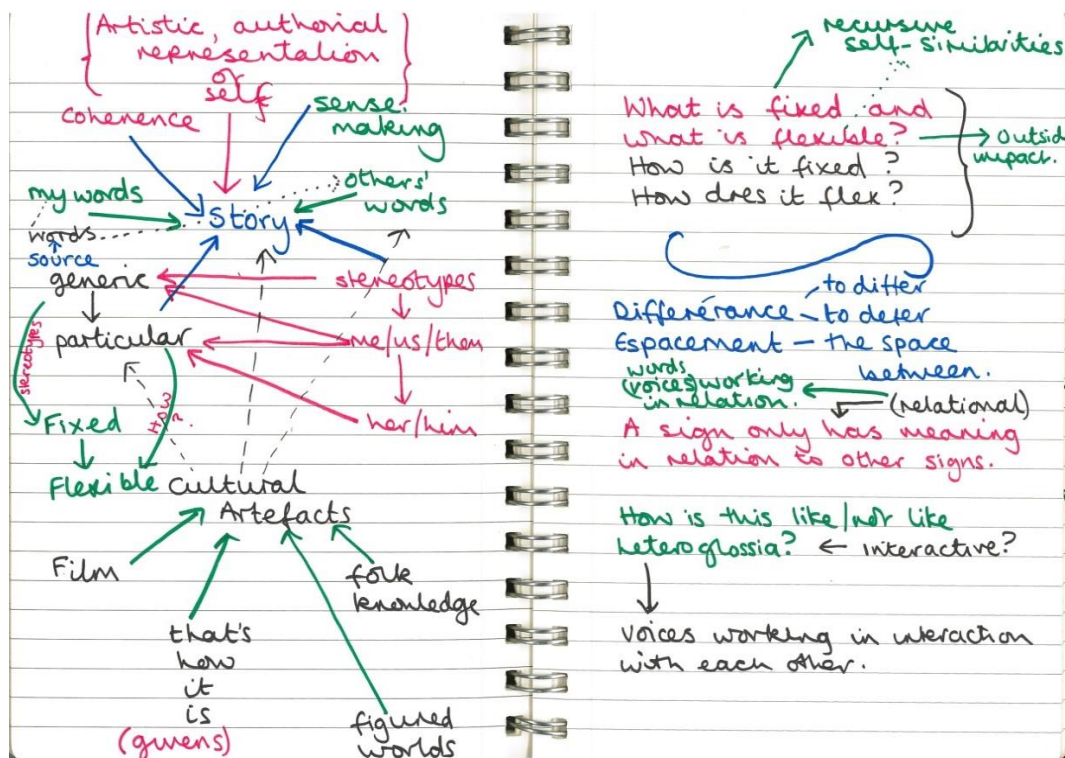 Artistic, authorial
representation
of
self
coherence
sense.
making
my words
others'
words
Story
words
source
generic
stereotypes
particular
me/us/them
stereotypes
How?
her/him
Fixed
Flexible
Cultural
Artefacts
Film
folk
knowledge
that's
how
it
is
(givens)
figured
worlds
recursive
self-similarities
What is fixed and
what is flexible?
outside
impact.
How is it fixed?
How does it flex?
to differ
Differérance – to defer
Espacement – the space
between.
words
(voices) working
in relation.
(relational)
A sign only has meaning
in relation to other signs.
How is this like/not like
heteroglossia? ← interactive?
Voices working in interaction
with each other.